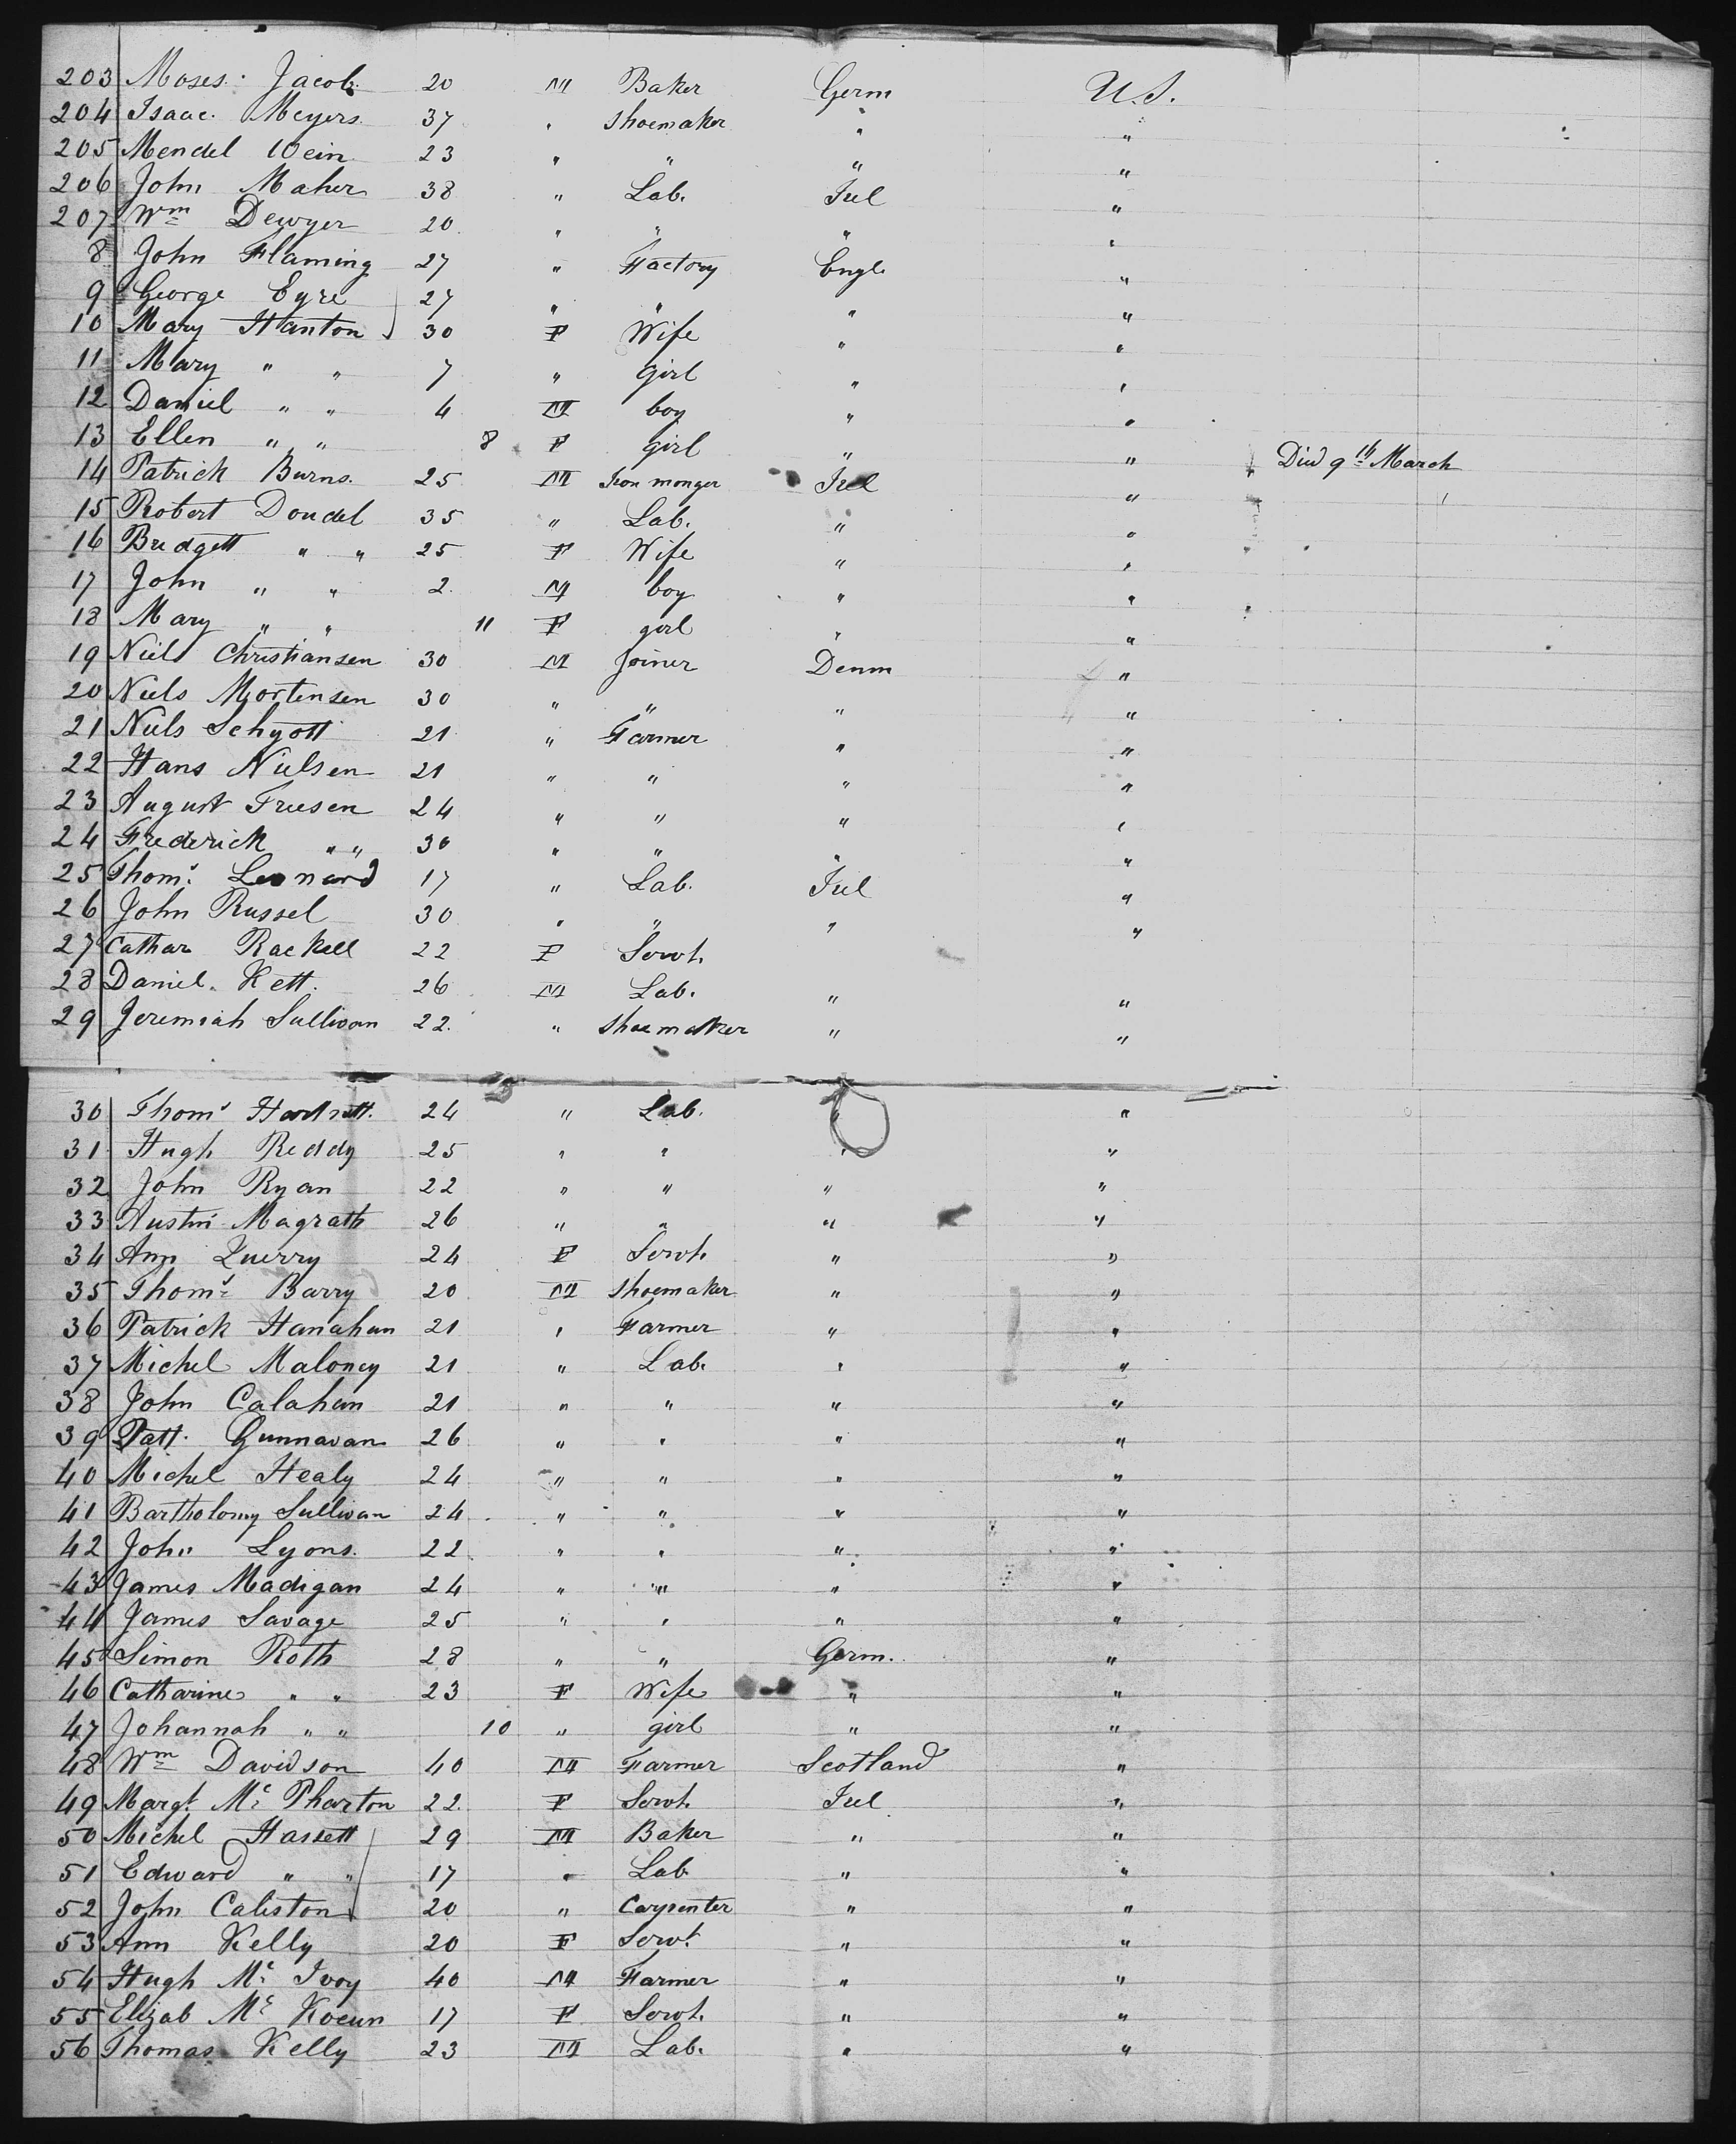 203 Moses Jacob 20 M Baker Germ U.S.
204 Isaac Meyers 37 " Shoemaker " "
205 Mendel Wein 23 " " " "
206 John Maher 38 " Lab. Irel "
207 Wm Dewyer 20 " " " "
8 John Flaming 27 " Factory Engl "
9 George Eyre 27 " " " "
10 Mary Hanton 30 F Wife " "
11 Mary " " 7 " Girl " "
12 Daniel " " 4 M boy " "
13 Ellen " " 8 F girl " " Died 9th March
14 Patrick Burns. 25 M Iron monger Irel "
15 Robert Doudel 35 " Lab. " "
16 Bridgett " " 25 F Wife " "
17 John " " 2. M boy " "
18 Mary " " 11 F girl " "
19 Niels Christiansen 30 M Joiner Denm "
20 Niels Mortensen 30 " " " "
21 Niels Schyott 21 " Farmer " "
22 Hans Nielsen 21 " " " "
23 August Friesen 24 " " " "
24 Frederick " " 30 " " " "
25 Thoms. Leonard 17 " Lab. Irel "
26 John Russel 30 " " " "
27 Cathar Rackell 22 F Servt.
28 Daniel. Kett. 26 M Lab. " "
29 Jeremiah Sullivan 22. " Shoemaker " "
30 Thoms 24 " Lab. " "
31 Hugh Reddy 25 " " " "
32 John Ryan 22 " " " "
33 Austin Magrath 26 " " " "
34 Ann Querry 24 F Servt. " "
35 Thoms Barry 20 M Shoemaker " "
36 Patrick Hanahan 21 " Farmer " "
37 Michel Maloney 21 " Lab. " "
38 John Calahan 21 " " " "
39 Patt. Gunnavan 26 " " " "
40 Michel Healy 24 " " " "
41 Bartholomy Sullivan 24 " " " "
42 John Lyons. 22 " " " "
43 James Madigan 24 " " " "
44 James Savage 25 " " " "
45 Simon Roth 28 " " Germ. "
46 Catharine " " 23 F Wife " "
47 Johannah " " 10 " girl " "
48 Wm Davidson 40 M Farmer Scotland "
49 Margt. Mc Pharton 22. F Servt. Irel "
50 Michel Hassett 29 M Baker " "
51 Edward " " 17 " Lab " "
52 John Caliston 20 " Carpenter " "
53 Ann Kelly 20 F Servt " "
54 Hugh Mc Ivoy 40 M Farmer " "
55 Elizab Mc Koeun 17 F Servt. " "
56 Thomas Kelly 23 M Lab. " "